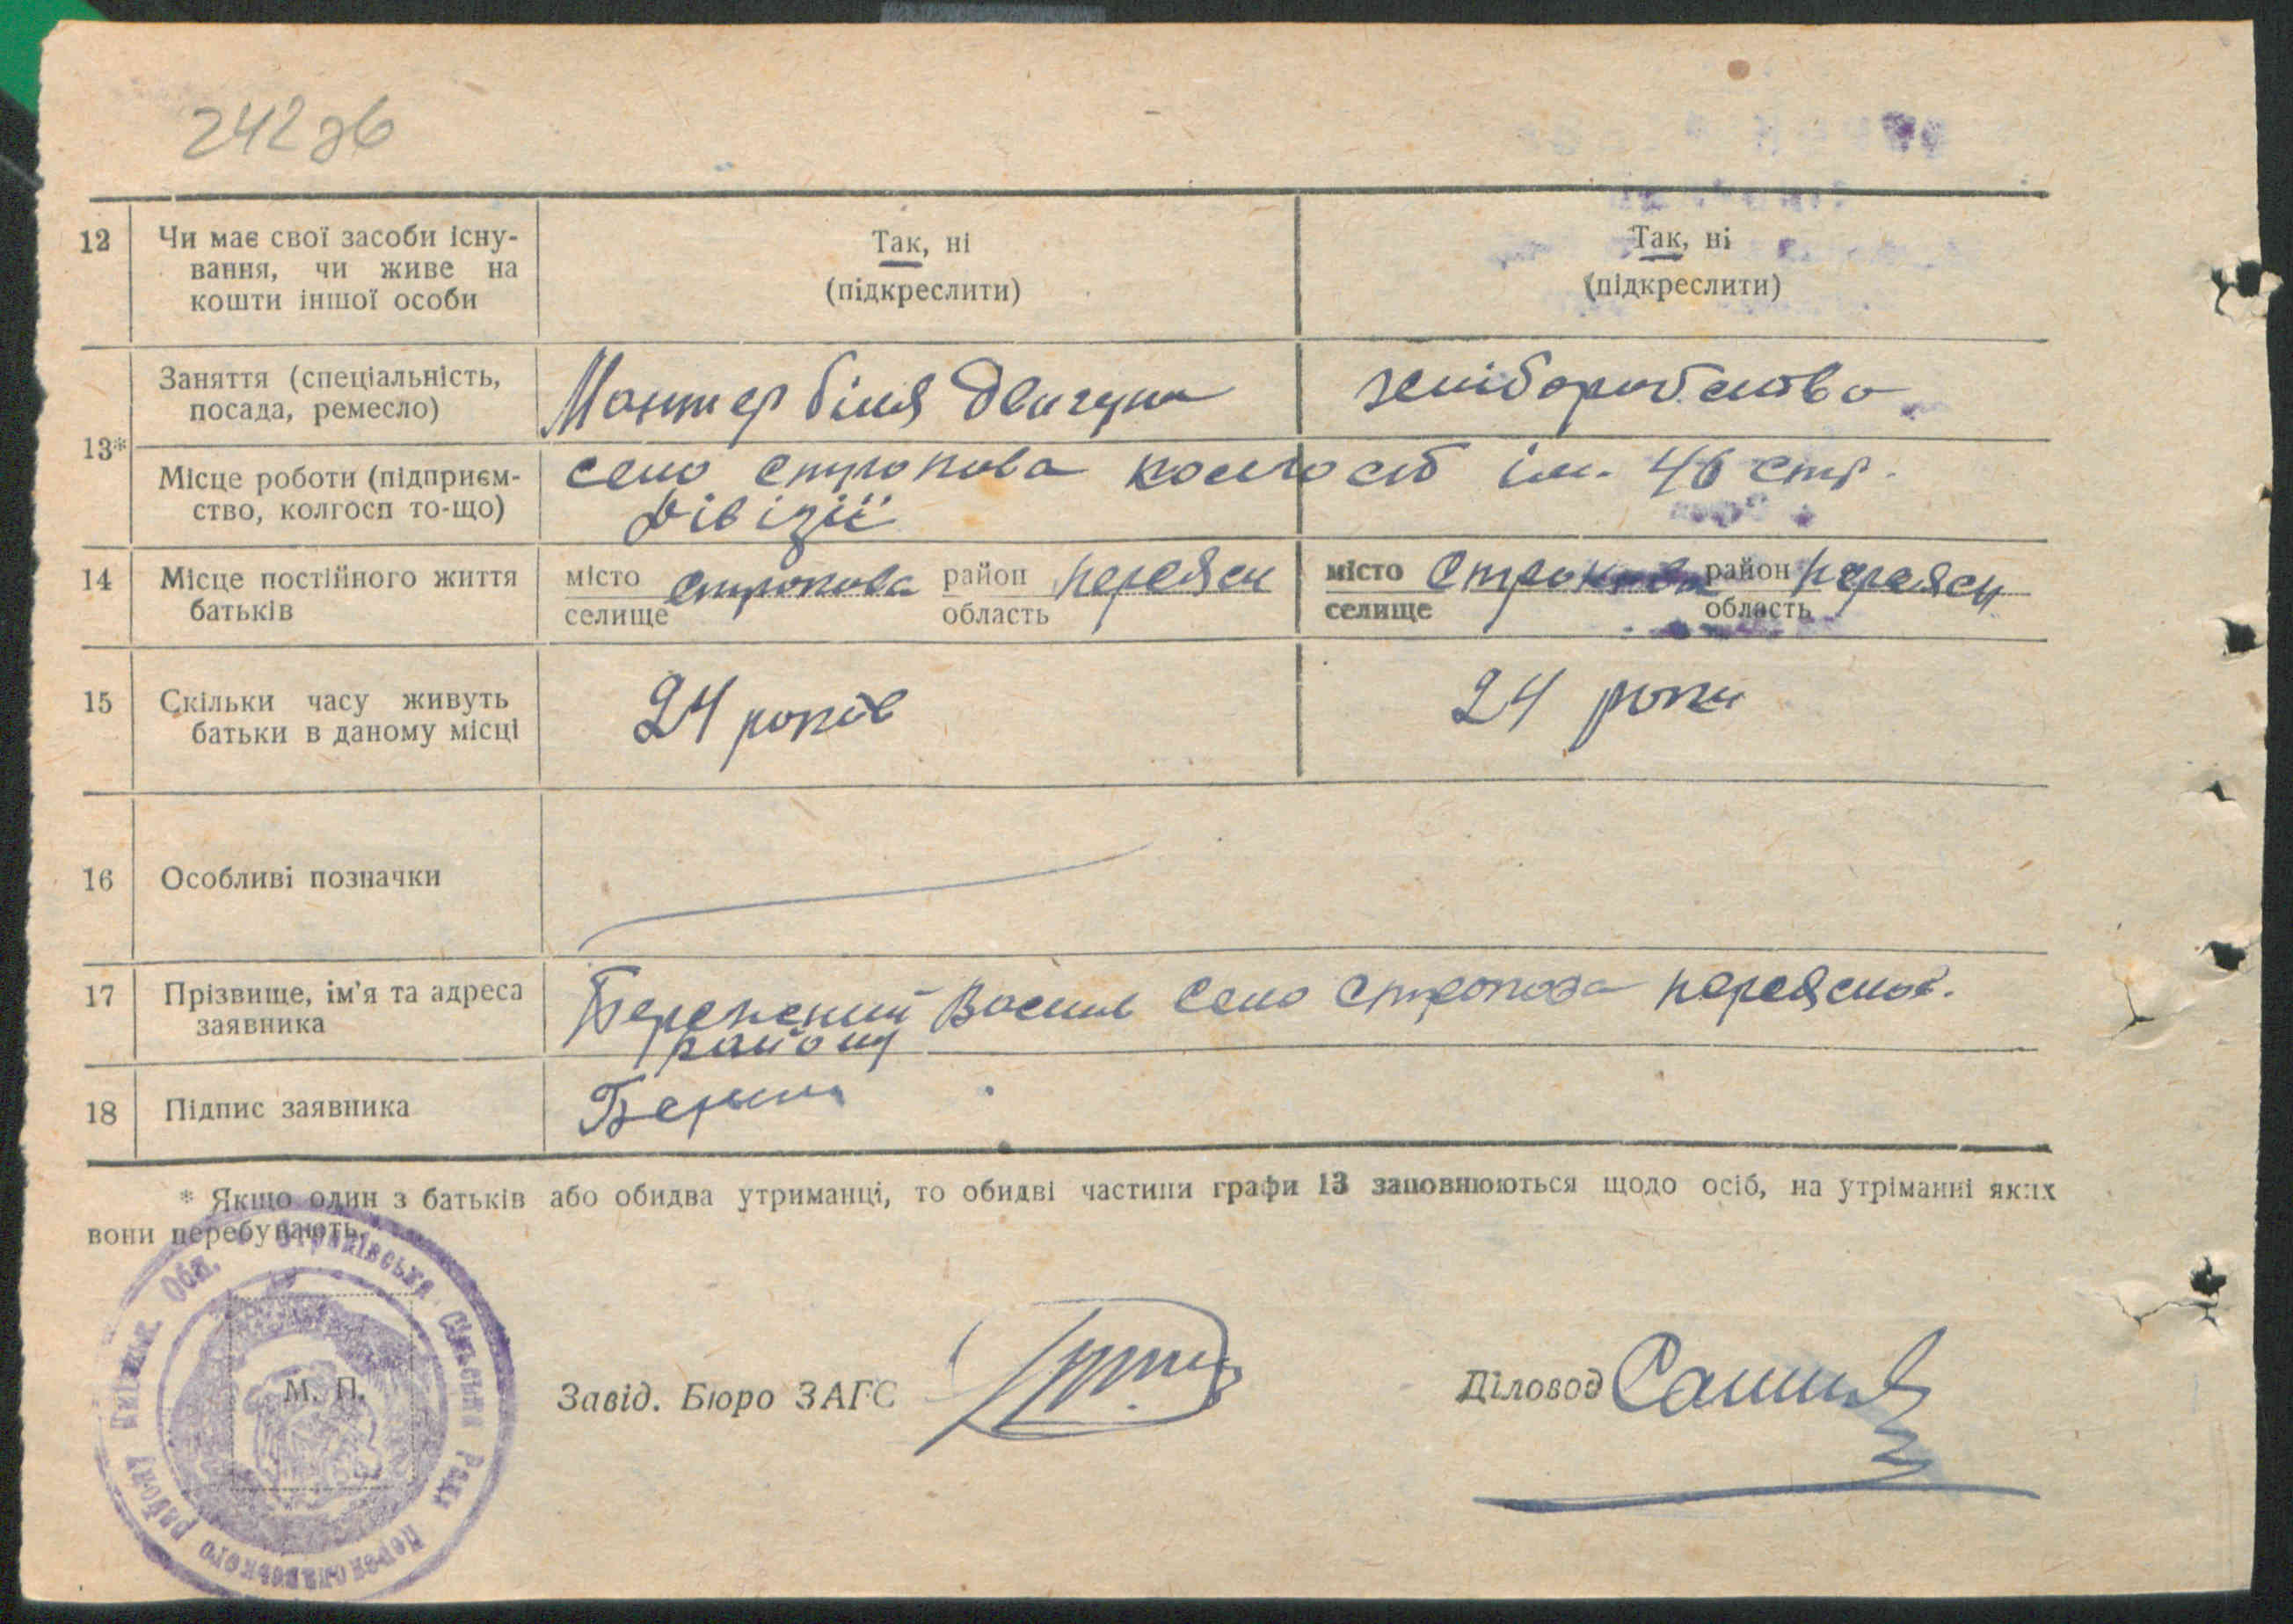 242зв
12 Чи має свої засоби існу- Так, ні Так, ні
вання, чи живе на (підкреслити) (підкреслити)
кошти іншої особи
13* Заняття (спеціальність, Монтер біля двигуна
посада, ремесло)
Місце роботи (підприєм- село строкова колгосп ім. 46 стр.
ство, колгосп то-що) дівізії
14 Місце постійного життя місто строкова район переясл місто строкова район переясл
батьків селище область селище область
15 Скільки часу живуть 24 років 24 роки
батьки в даному місці
16 Особливі позначки
17 Прізвище, ім'я та адреса Василь село строкова переяслов.
заявника району
18 Підпис заявника
* Якщо один з батьків або обидва утриманці, то обидві частини графи 13 заповнюються щодо осіб, на утріманні яких
вони перебувають.
Строківська Сільська Рада Переяславського району Київськ. Обл.
М. П.
Завід. Бюро ЗАГС
Діловод